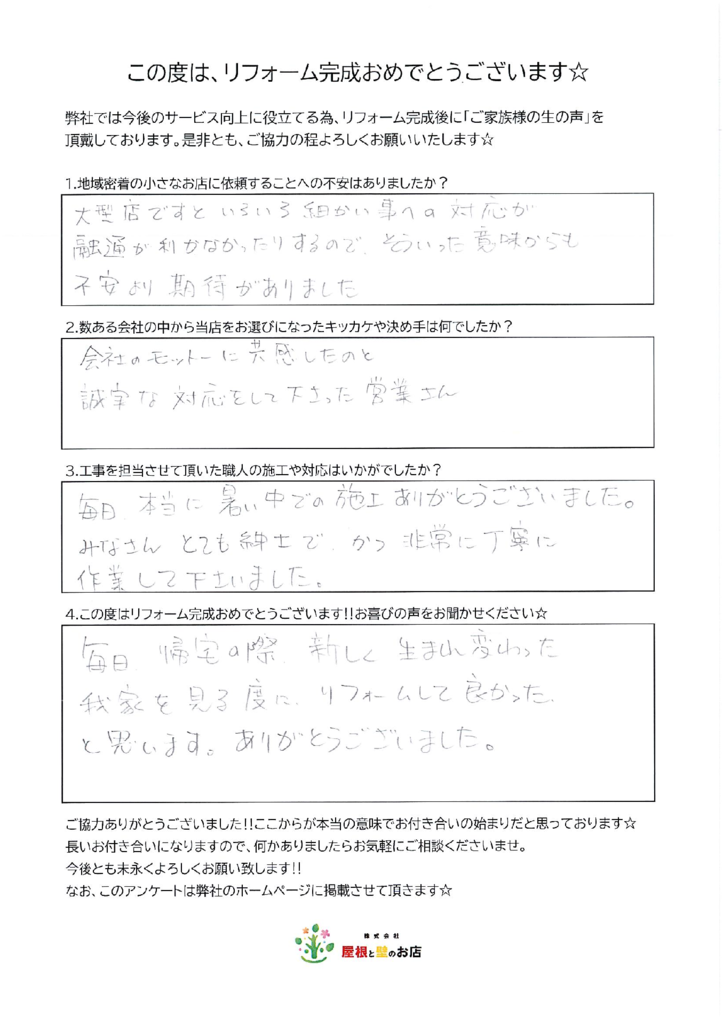 この度は、リフォーム完成おめでとうございます☆
弊社では今後のサービス向上に役立てる為、リフォーム完成後に「ご家族様の生の声」を
頂戴しております。是非とも、ご協力の程よろしくお願いいたします☆
1.地域密着の小さなお店に依頼することへの不安はありましたか？
大型店ですと いろいろ 細かい事への 対応が
融通が利かなかったりするので、そういった意味からも
不安より 期待がありました
2.数ある会社の中から当店をお選びになったキッカケや決め手は何でしたか？
会社のモットーに 共感したのと
誠実な 対応をして下さった 営業さん
3.工事を担当させて頂いた職人の施工や対応はいかがでしたか？
毎日、本当に 暑い中での施工 ありがとうございました。
みなさん とても紳士で、かつ 非常に丁寧に
作業して下さいました。
4.この度はリフォーム完成おめでとうございます!!お喜びの声をお聞かせください☆
毎日、帰宅の際、新しく 生まれ変わった
我家を見る度に、リフォームして良かった、
と思います。ありがとうございました。
ご協力ありがとうございました!!ここからが本当の意味でお付き合いの始まりだと思っております☆
長いお付き合いになりますので、何かありましたらお気軽にご相談くださいませ。
今後とも末永くよろしくお願い致します!!
なお、このアンケートは弊社のホームページに掲載させて頂きます☆
株式会社
屋根と壁のお店